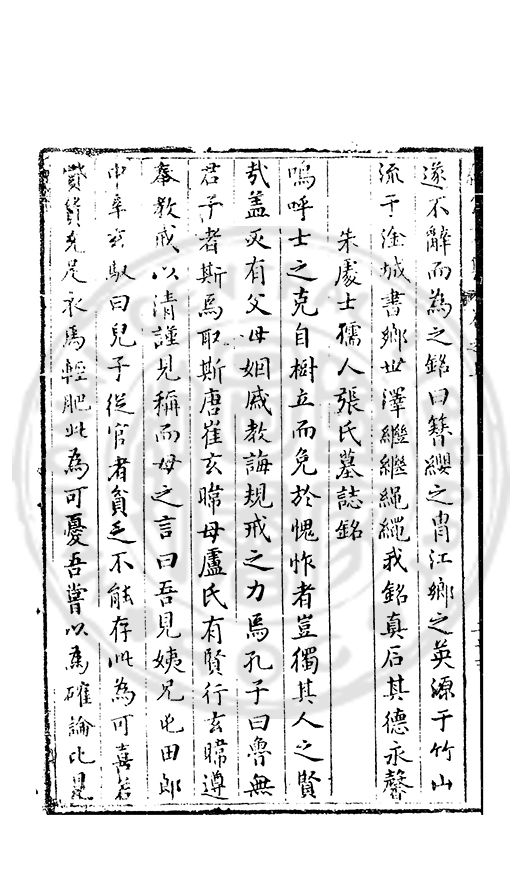 遂不辭而為之銘曰簪纓之胄江鄉之英源于竹山
流于淦城書鄉世澤繼繼繩繩我銘真石其德永馨
朱處士孺人張氏墓誌銘
嗚呼士之克自樹立而免於愧怍者豈獨其人之賢
㢤盖灭有父母姻戚教誨規戒之力焉孔子曰魯無
君子者斯焉取斯唐崔玄暐母盧氏有賢行玄暐遵
奉教戒以清謹見稱而母之言曰吾見姨兄屯田郎
中辛玄馭曰兒子從官者貧乏不能存此為可喜若
貲貨充足衣馬輕肥此為可憂吾嘗以為確論比見